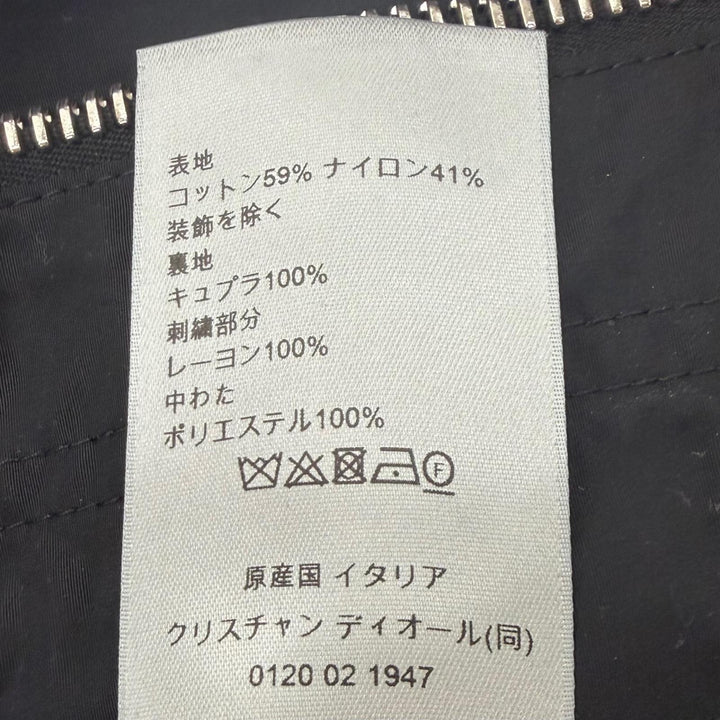 表地
コットン59% ナイロン41%
装飾を除く
裏地
キュプラ100%
刺繍部分
レーヨン100%
中わた
ポリエステル100%
F
原産国 イタリア
クリスチャン ディオール(同)
0120 02 1947